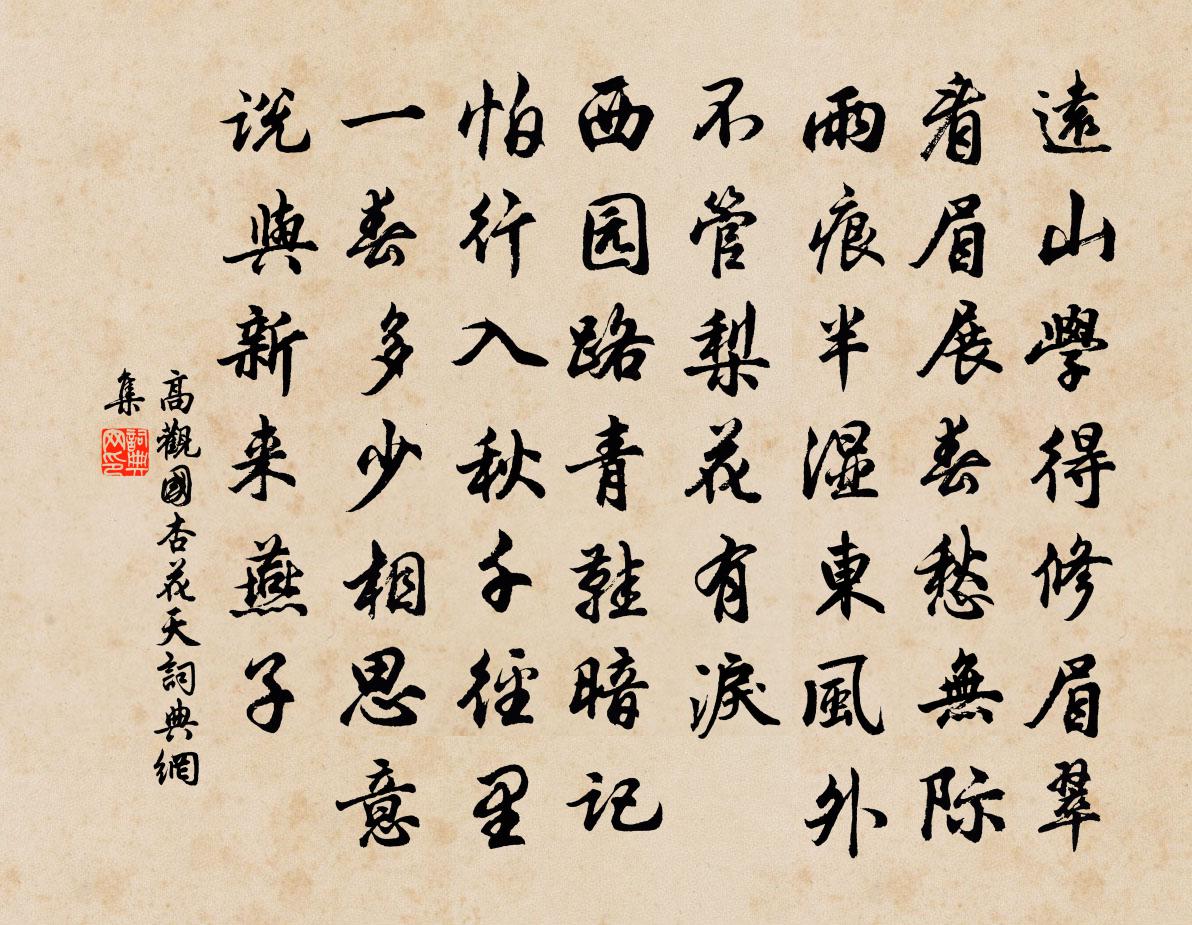 遠山學得修眉翠
看眉展春愁無際
雨痕半濕東風外
不管梨花有淚
西园路青鞋暗記
怕行入秋千徑里
一春多少相思意
说與新来燕子
高觀國杏花天詞典網
集
詞典网印